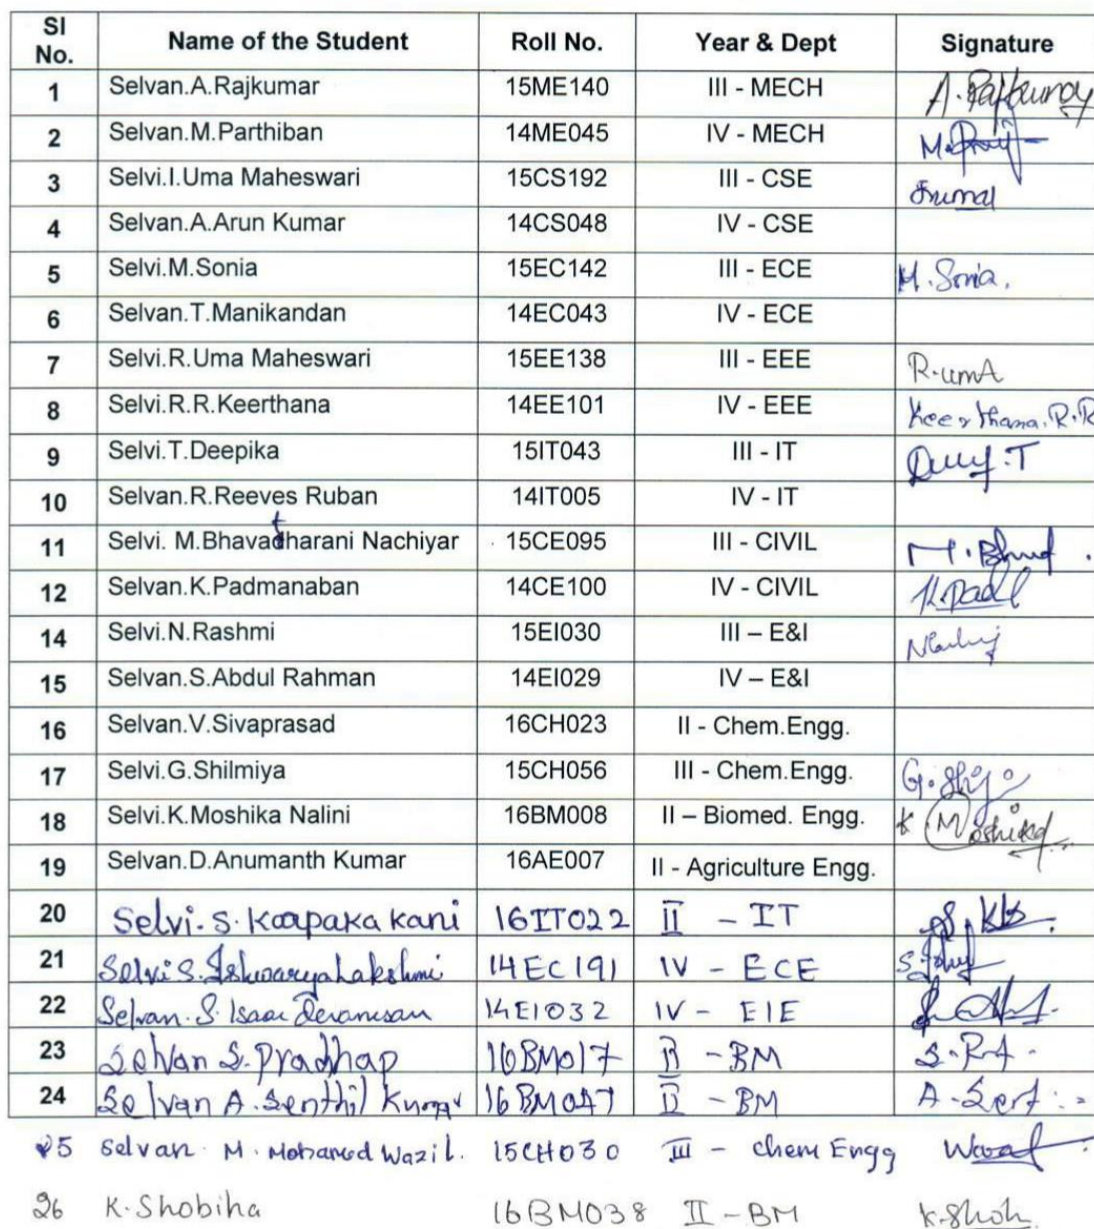 Sl No. Name of the Student Roll No. Year & Dept Signature
1 Selvan.A.Rajkumar 15ME140 III - MECH A. Rajkumar
2 Selvan.M.Parthiban 14ME045 IV - MECH
3 Selvi.I.Uma Maheswari 15CS192 III - CSE
4 Selvan.A.Arun Kumar 14CS048 IV - CSE
5 Selvi.M.Sonia 15EC142 III - ECE M. Sonia.
6 Selvan.T.Manikandan 14EC043 IV - ECE
7 Selvi.R.Uma Maheswari 15EE138 III - EEE R.umA
8 Selvi.R.R.Keerthana 14EE101 IV - EEE Keerthana.R.R
9 Selvi.T.Deepika 15IT043 III - IT
10 Selvan.R.Reeves Ruban 14IT005 IV - IT
11 Selvi. M.Bhavatharani Nachiyar 15CE095 III - CIVIL
12 Selvan.K.Padmanaban 14CE100 IV - CIVIL
14 Selvi.N.Rashmi 15EI030 III – E&I
15 Selvan.S.Abdul Rahman 14EI029 IV – E&I
16 Selvan.V.Sivaprasad 16CH023 II - Chem.Engg.
17 Selvi.G.Shilmiya 15CH056 III - Chem.Engg.
18 Selvi.K.Moshika Nalini 16BM008 II – Biomed. Engg. K.Moshika
19 Selvan.D.Anumanth Kumar 16AE007 II - Agriculture Engg.
20 Selvi. S. Kaapaka kani 16IT022 II - IT
21 Selvi S. Ishwarya Lakshmi 14EC191 IV - ECE
22 Selvan. S. Isaac 14EI032 IV - EIE
23 Selvan S. Pradhap 16BM017 II - BM
24 Selvan A. Senthil Kumar 16BM047 II - BM
25 Selvan M. Mohamed Wazil. 15CH030 III - chem Engg
26 K. Shobiha 16BM038 II - BM K.Shoh